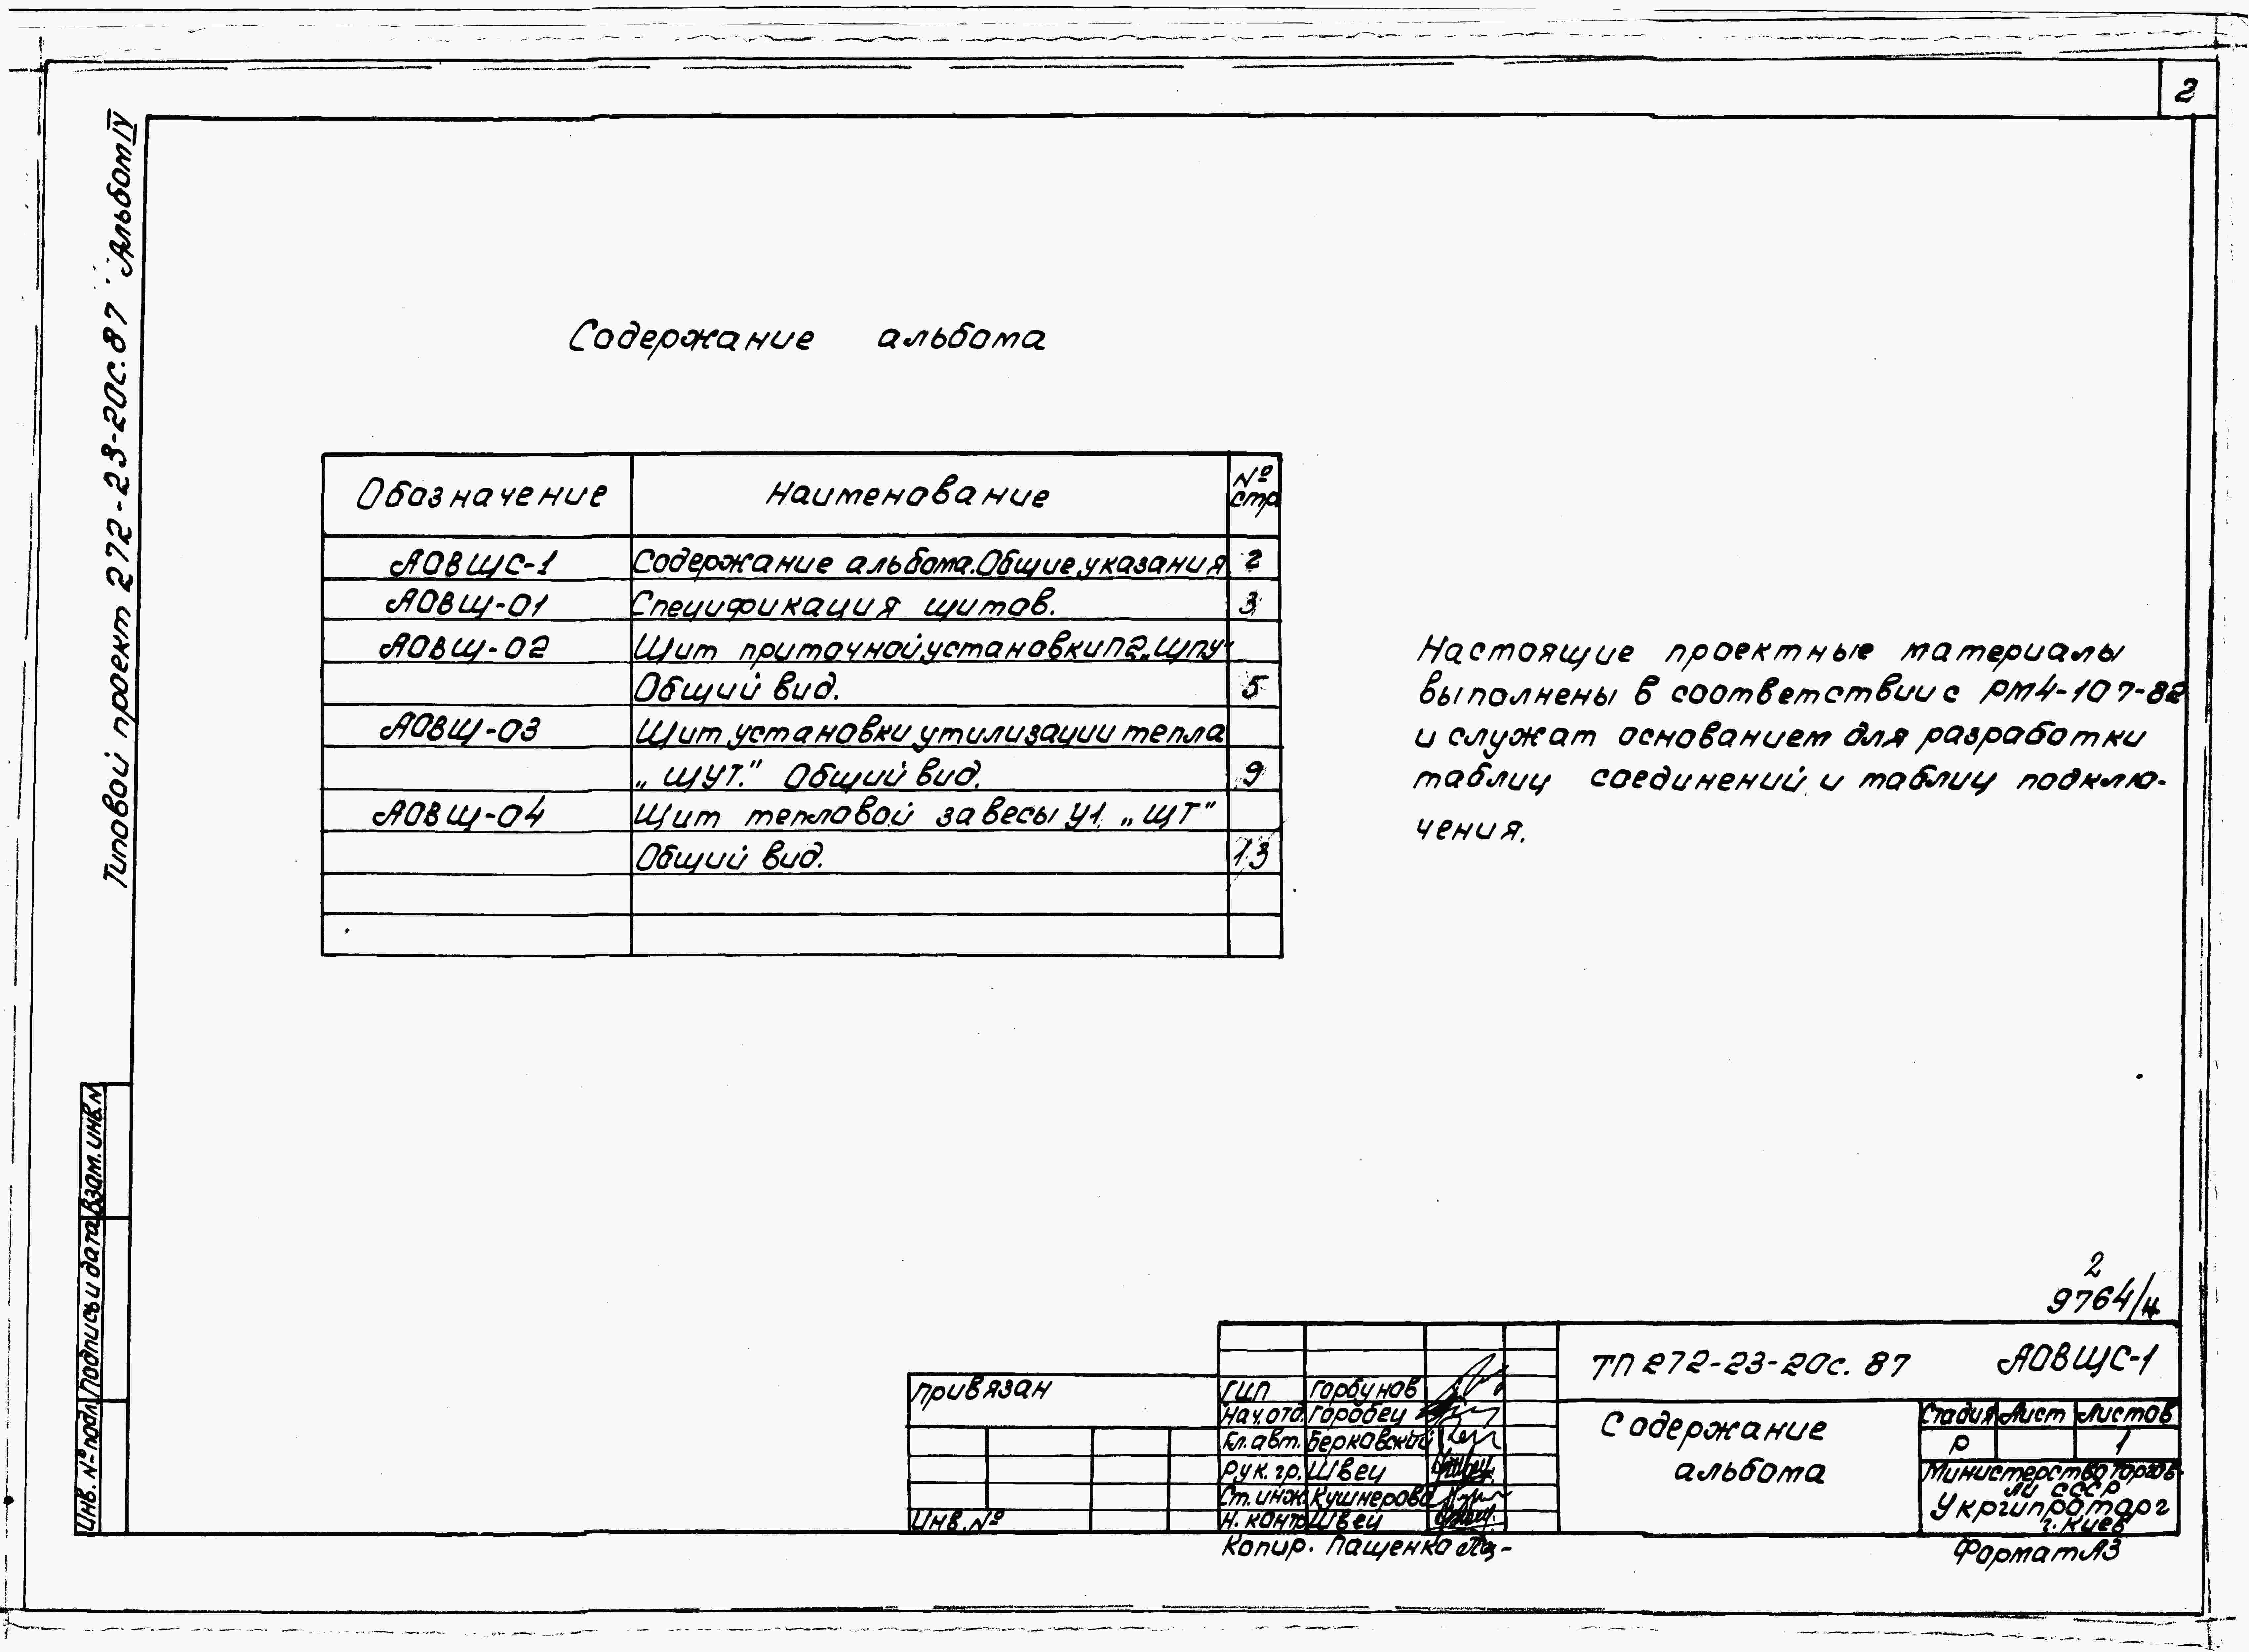 2
Типовой проект 272-23-20с.87 Альбом IV
Содержание альбома
Обозначение Наименование № стр
АОВЩС-1 Содержание альбома. Общие указания 2
АОВЩ-01 Спецификация щитов. 3
АОВЩ-02 Щит приточной установки П2 „ЩПУ"
Общий вид. 5
АОВЩ-03 Щит установки утилизации тепла
„ЩУТ." Общий вид. 9
АОВЩ-04 Щит тепловой завесы У1. „ЩТ"
Общий вид. 13
Настоящие проектные материалы
выполнены в соответствии с РМ4-107-82
и служат основанием для разработки
таблиц соединений и таблиц подклю-
чения.
Взам. инв. N
Подпись и дата
Инв. № подл.
2
9764/4
привязан
Инв. №
ГИП Горбунов
Нач. отд. Горобец
Гл. авт. Берковский
Рук. гр. Швец
Ст. инж. Кушнерова
Н. контр Швец
ТП 272-23-20с. 87 АОВЩС-1
Содержание
альбома
Стадия Лист Листов
Р 1
Министерство торгов-
ли СССР
Укргипроторг
г. Киев
Копир. Пащенко
Формат А3